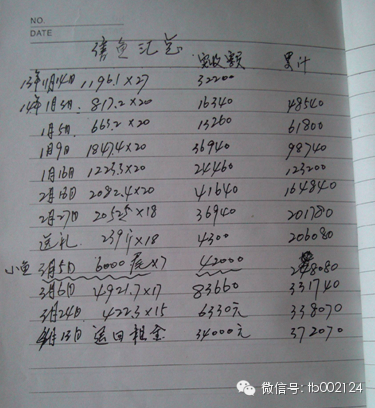 NO.
DATE
售鱼汇总 实收额 累计
13年11月14日 1196.1×27 32200
14年1月3日. 817.2×20 16340 48540
1月5日. 663.2×20 13260 61800
1月9日 1847.4×20 36940 98740
1月16日 1223.3×20 24460 123200
2月13日 2082.4×20 41640 164840
2月27日 2052×18 36940 201780
送礼. 239斤×18 4300 206080
小鱼 3月5日 6000尾×7 42000 248080
3月6日 4921.7×17 83660 331740
3月24日 422.3×15 6330元 338070
月13日 退回租金 34000元 372070
微信号: tb002124